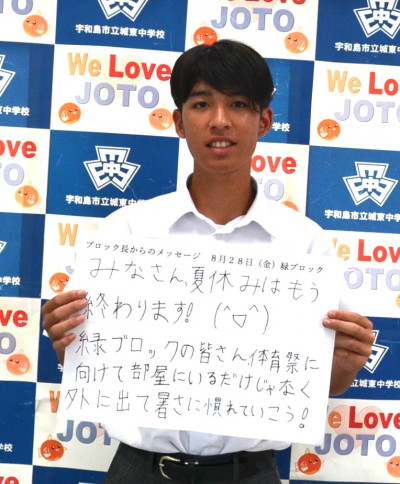 We Love
JOTO
宇和島市立城東中学校
We Love
JOTO
宇和島市立城東中学校
ブロック長からのメッセージ 8月28日(金)緑ブロック
みなさん、夏休みはもう
終わります! (^▽^)
緑ブロックの皆さん、体育祭に
向けて部屋にいるだけじゃなく
外に出て暑さに慣れていこう!